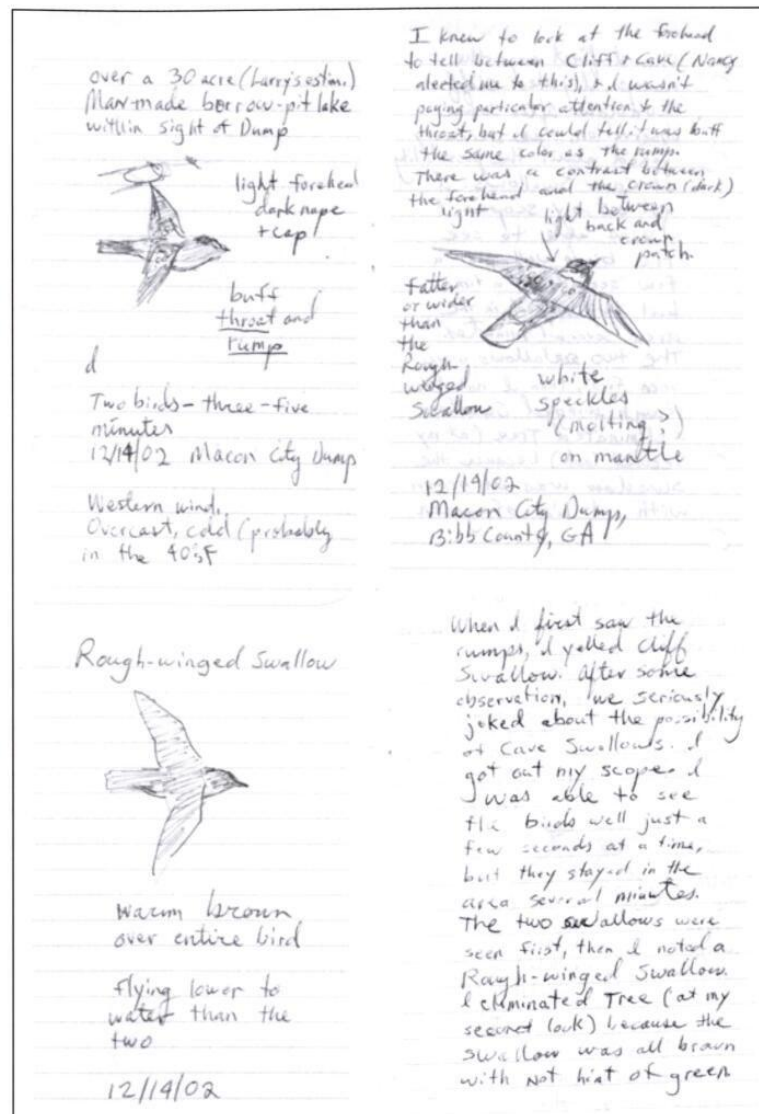 over a 30 acre (Larry's estim.)
Man-made borrow-pit lake
within sight of Dump
light forehead
dark nape
+ cap
buff
throat and
rump
d
Two birds - three - five
minutes
12/14/02 Macon City Dump
Western wind,
Overcast, cold (probably
in the 40's F
I knew to look at the forehead
to tell between Cliff + Cave (Nancy
alerted me to this), + I wasn't
paying particular attention to the
throat, but I could tell it was buff
the same color as the rump.
There was a contrast between
the forehead and the crown (dark)
light
light between
back and
crown
patch.
fatter
or wider
than
the
Rough-
winged
Swallow
white
speckles
(molting?)
on mantle
12/14/02
Macon City Dump,
Bibb County, GA
Rough-winged Swallow
warm brown
over entire bird
flying lower to
water than the
two
12/14/02
When I first saw the
rumps, I yelled Cliff
Swallow. After some
observation, we seriously
joked about the possibility
of Cave Swallows. I
got out my scope. I
was able to see
the birds well just a
few seconds at a time,
but they stayed in the
area several minutes.
The two swallows were
seen first, then I noted a
Rough-winged Swallow.
I eliminated Tree (at my
second look) because the
swallow was all brown
with not hint of green